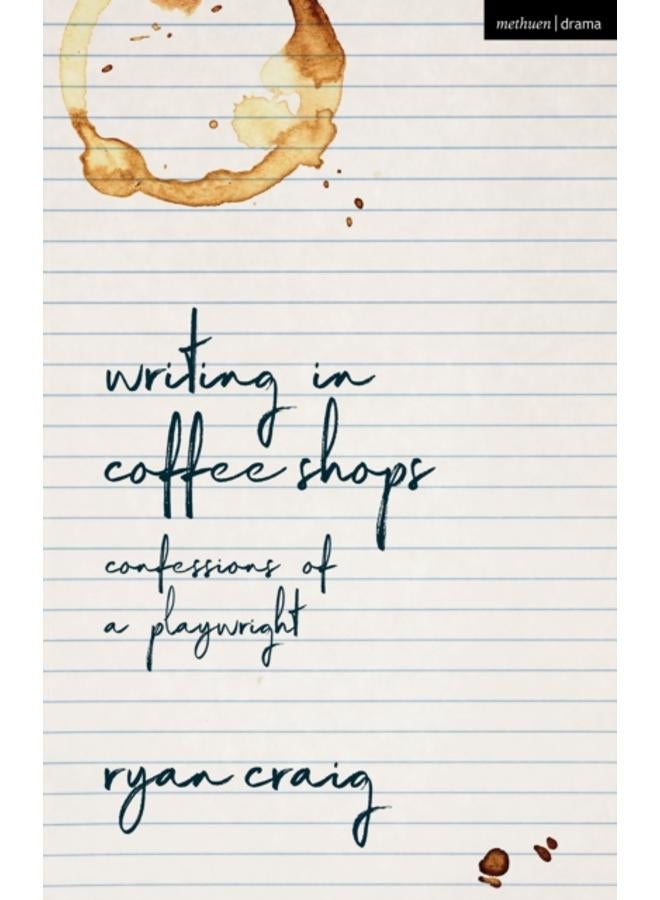 methuen | drama
writing in
coffee shops
confessions of
a playwright
ryan craig